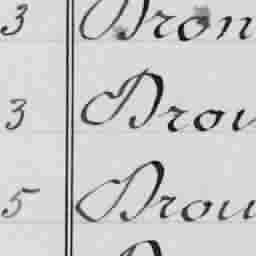 3 Dron
3 Drou
5 Drou